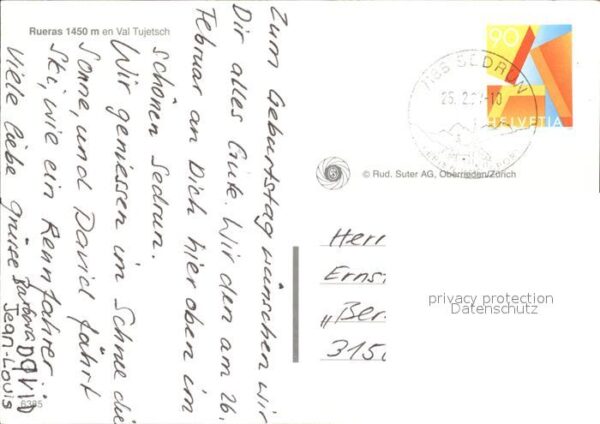 Rueras 1450 m en Val Tujetsch
Zum Geburtstag wünschen wir
Dir alles Gute. Wir denken am 26.
Februar an Dich hier oben im
schönen Sedrun.
Wir geniessen im Schnee die
Sonne, und David fährt
Ski, wie ein Rennfahrer
Viele liebe grüsse Barbara DAVID
Jean-Louis
6385
90
HELVETIA
7188 SEDRUN
© Rud. Suter AG, Oberrieden/Zürich
Herr
Ernst
„Ber
3150
privacy protection
Datenschutz